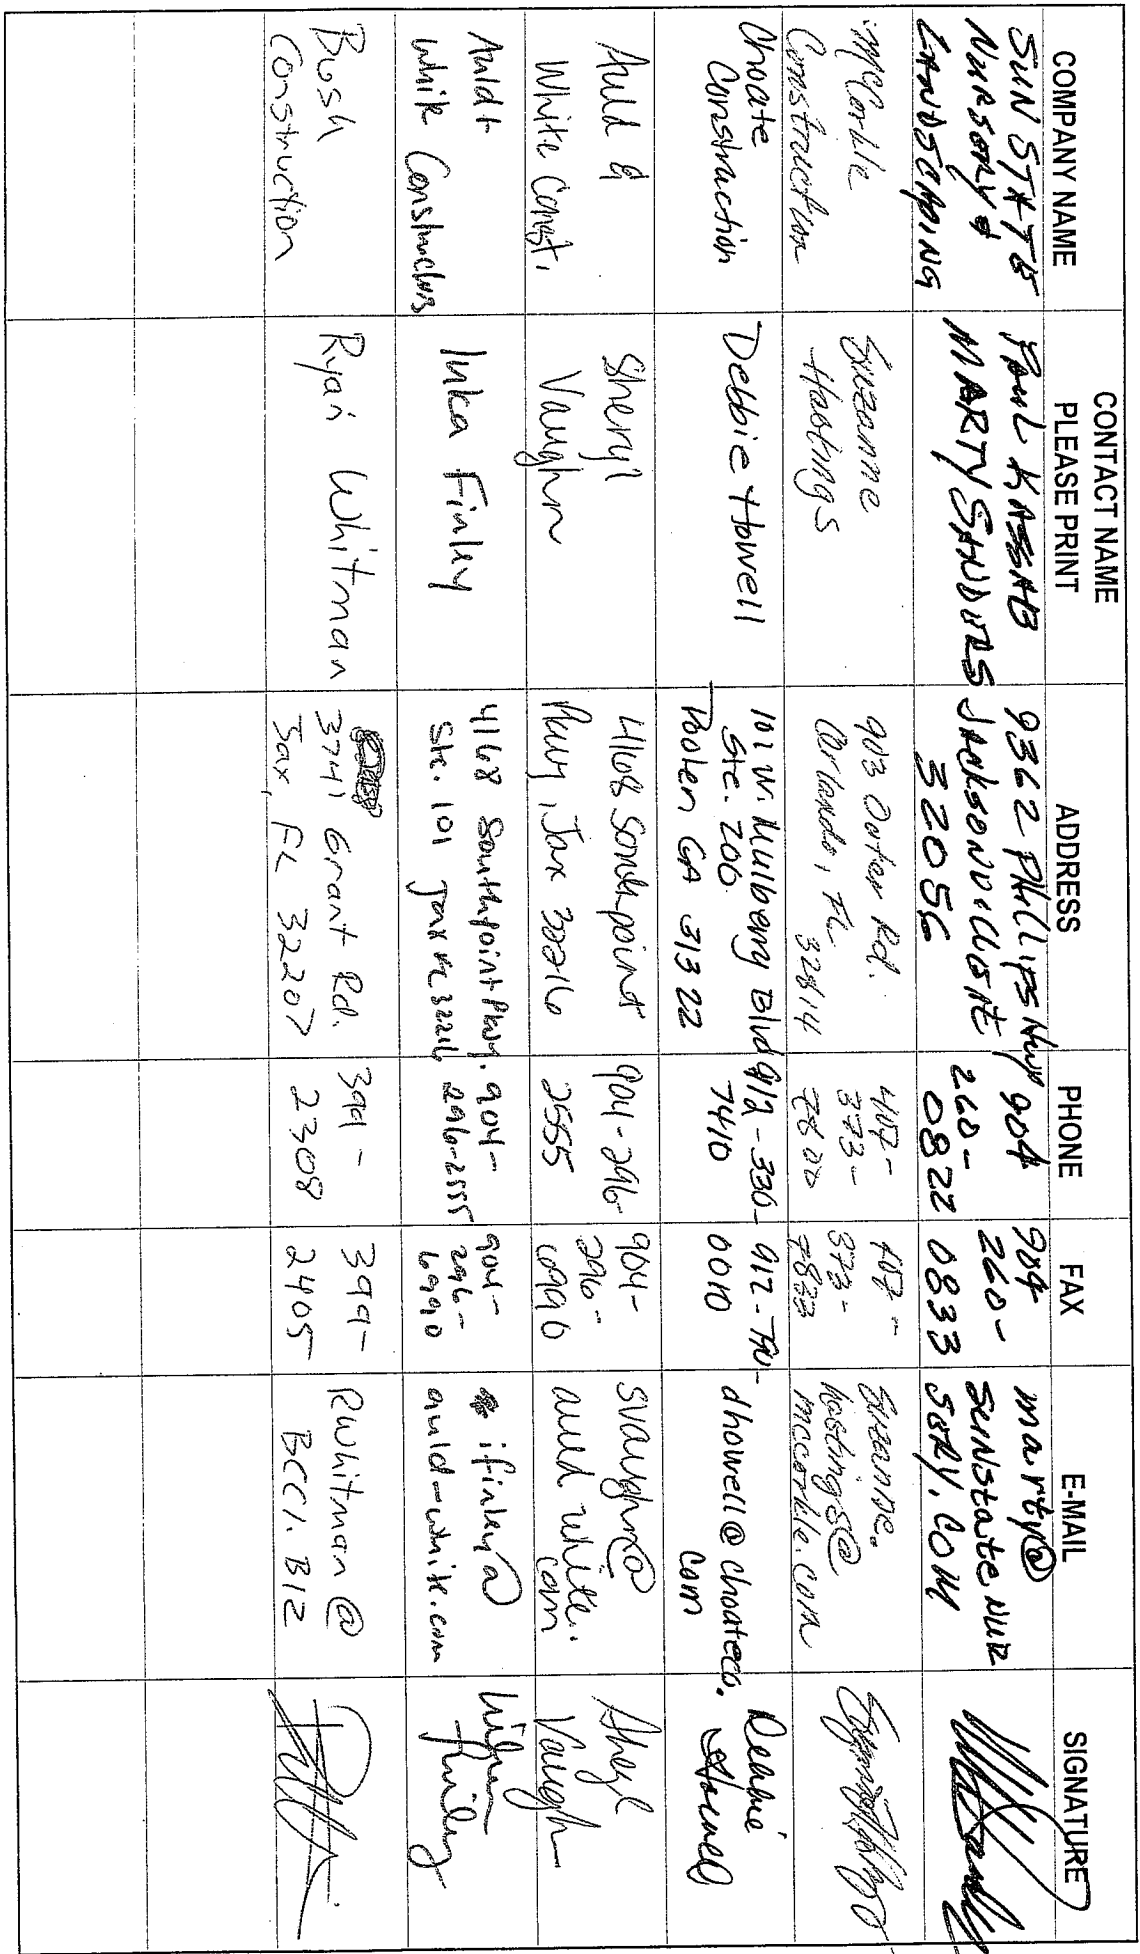 COMPANY NAME
CONTACT NAME
PLEASE PRINT
ADDRESS
PHONE
FAX
E-MAIL
SIGNATURE
SUN STATE
NURSERY &
LANDSCAPING
PAUL KASSAB
MARTY SANDERS
9362 PHILLIPS Hwy
JACKSONVILLE
32056
904
260-
0822
904
260-
0833
marty@
SUNState NUR
SERY.COM
McCorkle
Construction
Suzanne
Hastings
903 Outer Rd.
Orlando, FL
32814
407-
373-
7800
407-
373-
7833
Suzanne.
hastings@
mccorkle.com
Choate
Construction
Debbie Howell
101 W. Mulberry Blvd
Ste. 200
Pooler GA 31322
912-330-
7410
912-
0010
dhowell@choateco.
com
Debbie
Howell
Auld &
White Const.
Sheryl
Vaughn
4168 Southpoint
Pkwy, Jax 32216
904-296-
2555
904-
296-
6990
svaughn@
auld white.
com
Sheryl
Vaughn
Auld +
White Constructors
Iuka Finley
4168 Southpoint Pkwy.
Ste. 101 Jax FL 32216
904-
296-2555
904-
296-
6990
ifinley@
auld-white.com
Finley
Bush
Construction
Ryan Whitman
3741 Grant Rd.
Jax, FL 32207
399-
2308
399-
2405
RWhitman@
BCCI.BIZ